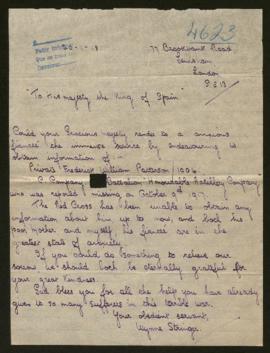 4623
77 Brookbank Road
Lewisham
London
S.E 13
"To His Majesty the King of Spain"
Could your Gracious Majesty render to a anxious
fiancée the immense service by endeavouring to
obtain information of -
Private Frederick William Pattison 1004
Company Battalion Honourable Artillery Company
who was reported missing on October 9th 1917.
The Red Cross has been unable to obtain any
information about him up to now, and both his
poor Mother and myself, his fiancée are in the
greatest state of anxiety.
If you could do something to relieve our
sorrow we should both be eternally grateful for
your great kindness.
God bless you for all the help you have already
given to so many sufferers in this terrible war.
Your obedient servant,
Wynne Stringer.